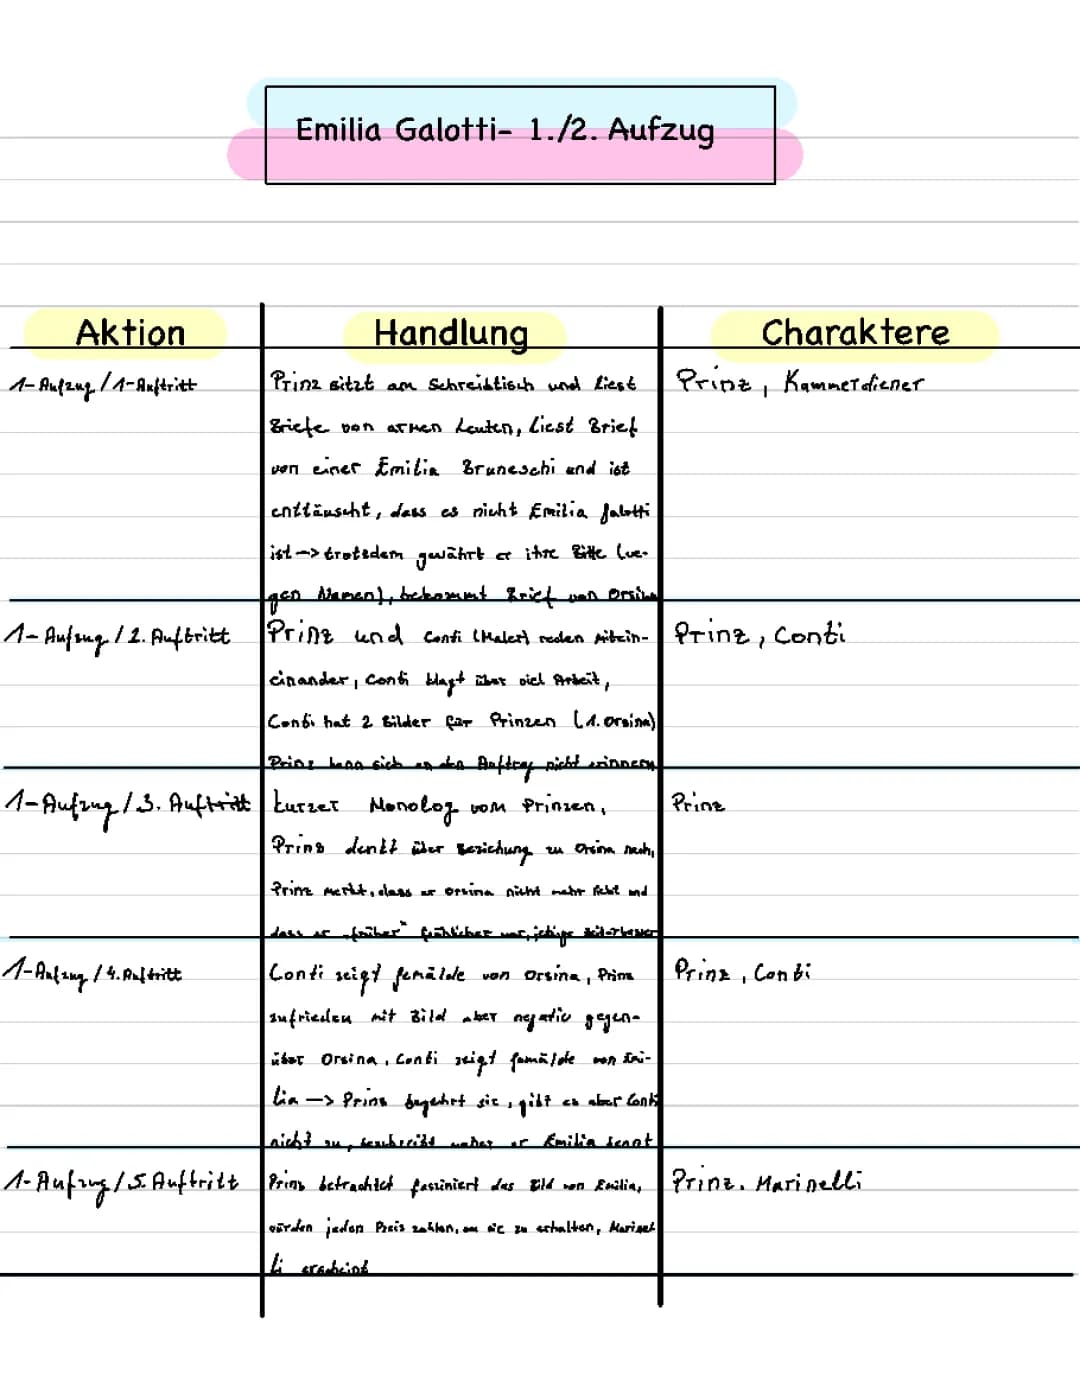 Emilia Galotti- 1./2. Aufzug
Aktion
Handlung
Charaktere
1-Aufzug/1-Auftritt
Prinz sitzt am Schreibtisch und liest
Briefe von armen Leuten, liest Brief
von einer Emilia Bruneschi und ist
enttäuscht, dass es nicht Emilia Galotti
ist -> trotzdem gewährt er ihre Bitte (we-
gen Namen), bekommt Brief von Orsina
Prinz, Kammerdiener
1-Aufzug/2. Auftritt
Prinz und Conti (Maler) reden mitein-
einander, Conti klagt über viel Arbeit,
Conti hat 2 Bilder für Prinzen (1. Orsina)
Prinz kann sich an den Auftrag nicht erinnern
Prinz, Conti
1-Aufzug/3. Auftritt
kurzer Monolog vom Prinzen,
Prinz denkt über Beziehung zu Orsina nach,
Prinz merkt, dass er Orsina nicht mehr liebt und
dass er "früher" fröhlicher war, jetzige
Prinz
1-Aufzug/4. Auftritt
Conti zeigt Gemälde von Orsina, Prinz
zufrieden mit Bild aber negativ gegen-
über Orsina, Conti zeigt Gemälde von Emi-
lia -> Prinz begehrt sie, gibt es aber Conti
nicht zu, beschreibt woher er Emilia kennt
Prinz, Conti
1-Aufzug/5. Auftritt
Prinz betrachtet fasziniert das Bild von Emilia,
würden jeden Preis zahlen, um sie zu erhalten, Marinel
li erscheint
Prinz, Marinelli